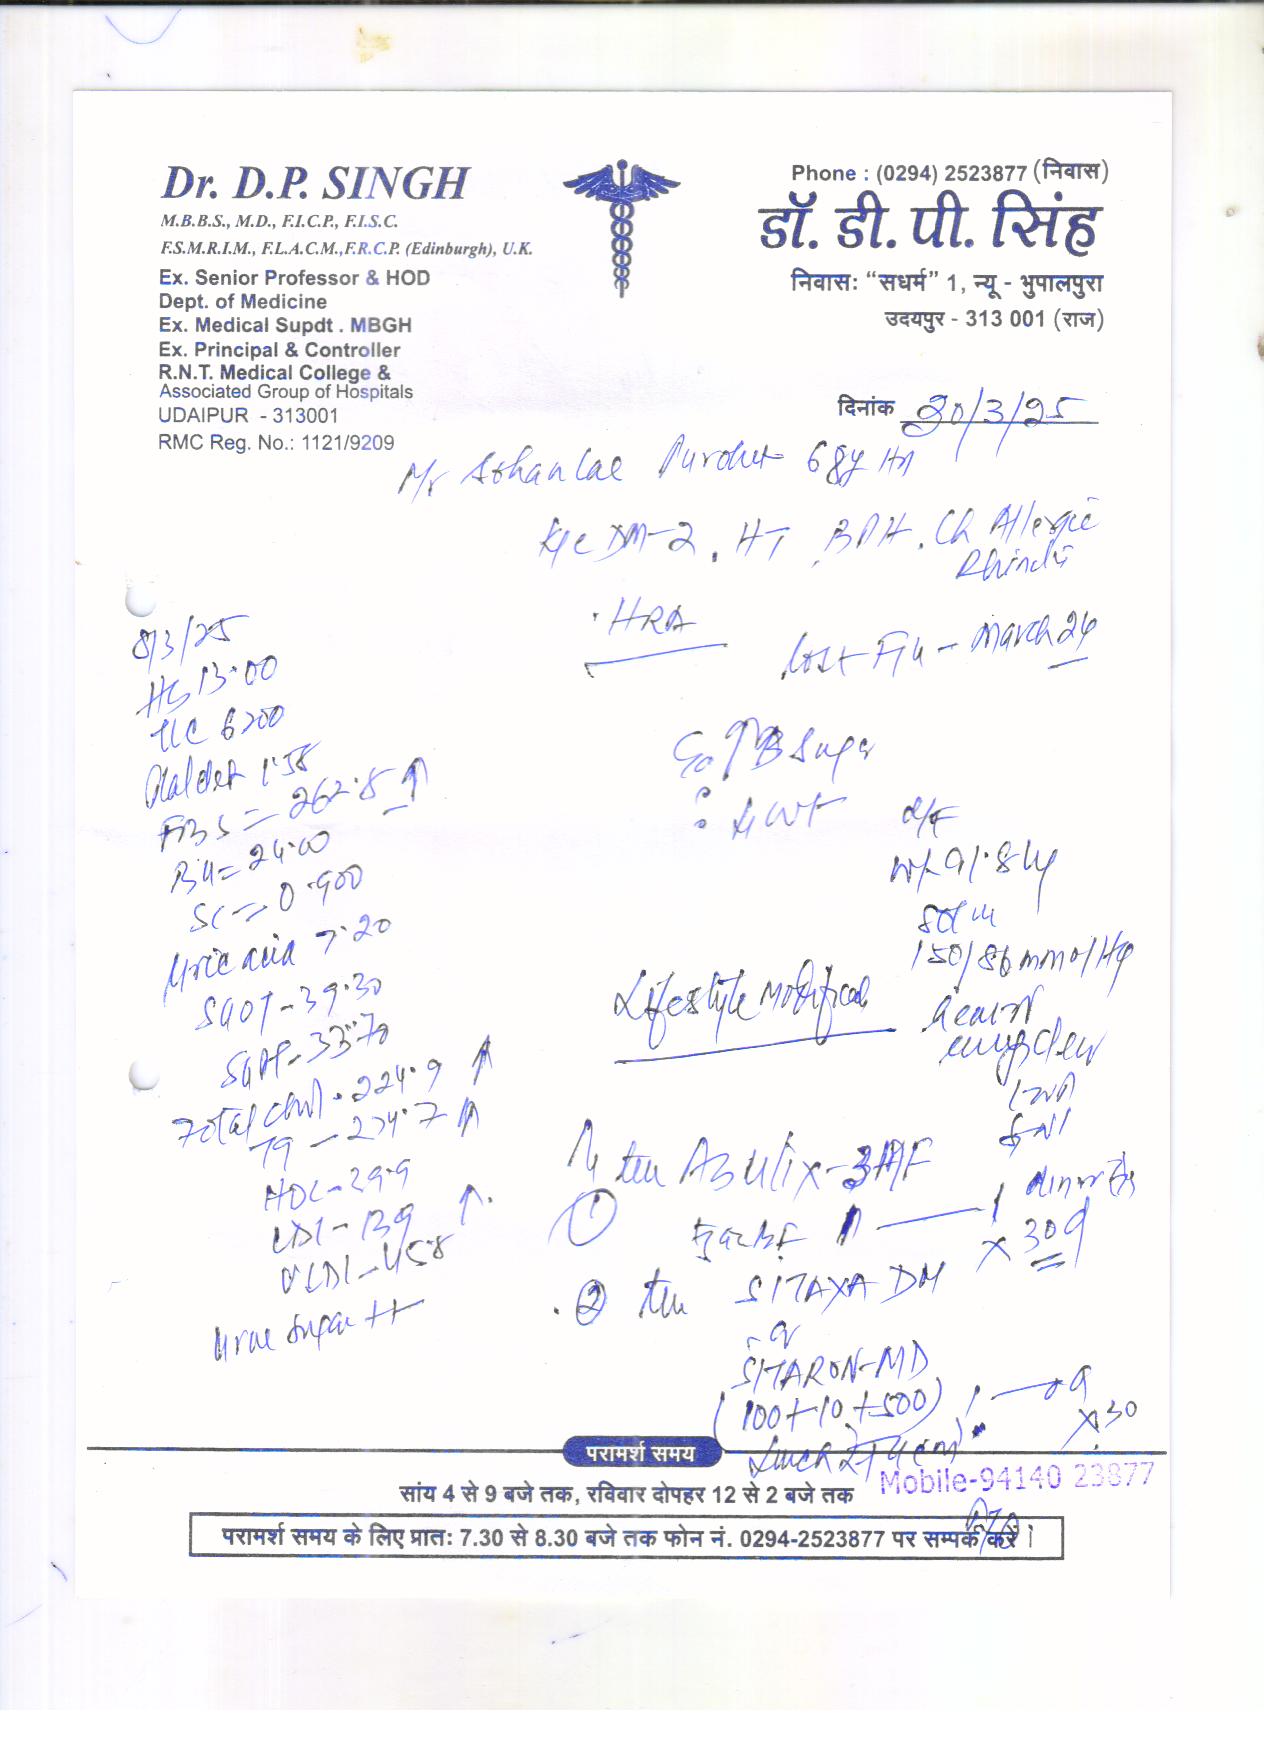 Dr. D.P. SINGH
M.B.B.S., M.D., F.I.C.P., F.I.S.C.
F.S.M.R.I.M., F.L.A.C.M.,F.R.C.P. (Edinburgh), U.K.
Ex. Senior Professor & HOD
Dept. of Medicine
Ex. Medical Supdt . MBGH
Ex. Principal & Controller
R.N.T. Medical College &
Associated Group of Hospitals
UDAIPUR - 313001
RMC Reg. No.: 1121/9209
Phone : (0294) 2523877 (निवास)
डॉ. डी. पी. सिंह
निवास: “सधर्म” 1, न्यू - भुपालपुरा
उदयपुर - 313 001 (राज)
दिनांक 20/3/25
Mr Sohanlal Purohit 68y
DM-2, HT, BPH, Ch Allergic
HRA
Last F/u - March 24
8/3/25
Hb 13.00
TLC 6200
1.58
FBS = 262.8 ↑
BU = 24.00
SC = 0.900
Uric acid 7.20
SGOT - 39.30
SGPT - 33.70
Total chol. 224.9 ↑
TG - 274.7 ↑
HDL - 39.9
LDL - 139 ↑
VLDL - 45.8
Urine Sugar ++
↑ B Sugar
Wt
O/E
Wt - 91.8 kg
150/86 mm of Hg
Lifestyle Modification
① Azulix-3MF
BF 1 — 1 dinner
x 30
②
SITAXA DM
or
SITARON-MD
(100+10+500) 1
Lunch
x 30
परामर्श समय
सांय 4 से 9 बजे तक, रविवार दोपहर 12 से 2 बजे तक
Mobile-94140 23877
परामर्श समय के लिए प्रात: 7.30 से 8.30 बजे तक फोन नं. 0294-2523877 पर सम्पर्क करें ।